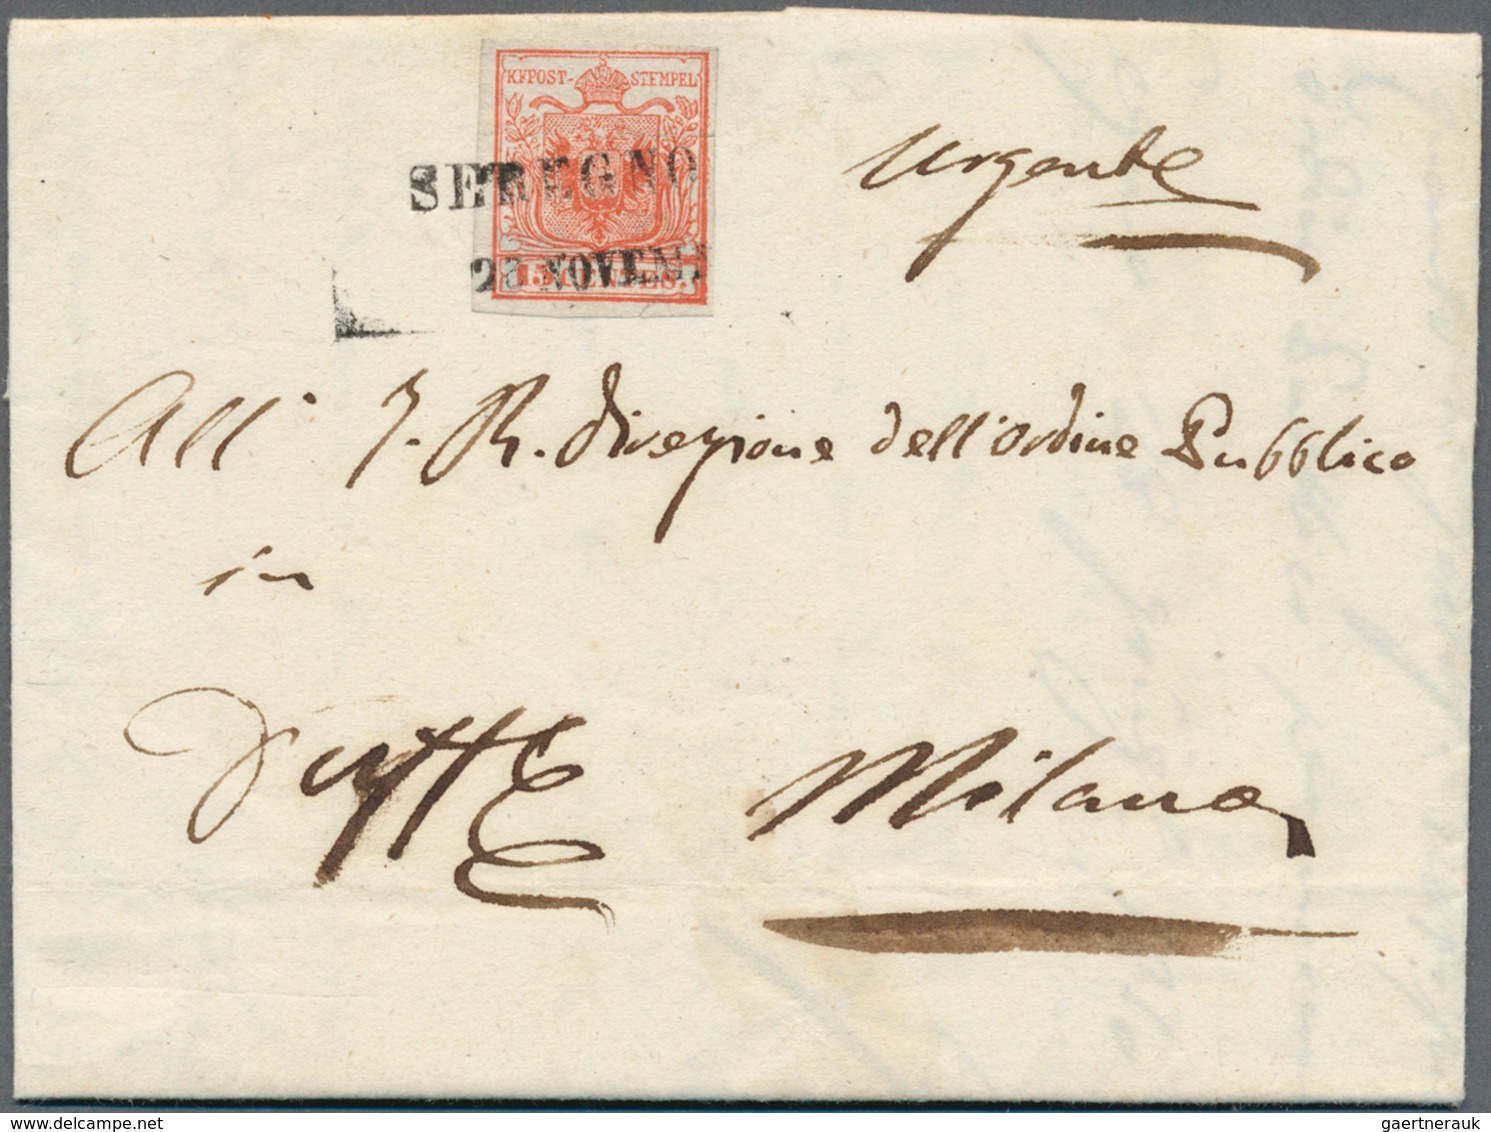 KKPOST- STEMPEL
SEREGNO
Urgente
NOVEM
15 CENTES.
All' I. R. direzione dell'ordine Pubblico
in
Milano
gaertnerauk